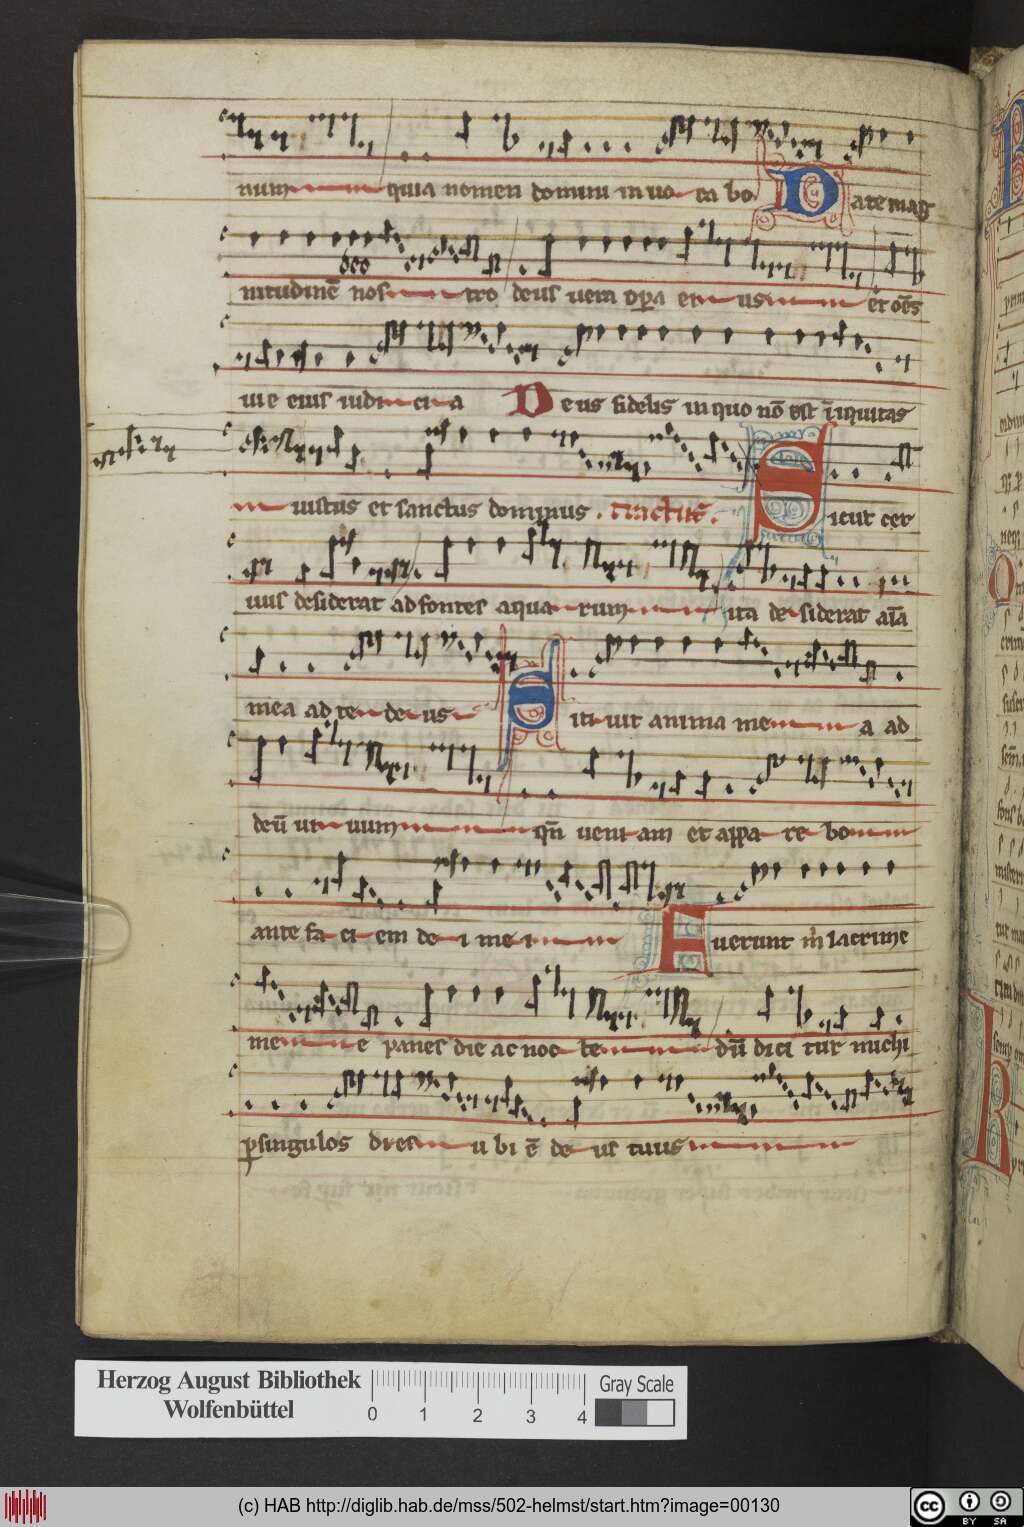 num quia nomen domini inuo ca bo Date mag
nitudinē nos tro deo deus uera opa ei us et om̄s
uie eius iudi ci a Deus fidelis in quo nō est iniquitas
iustus et sanctus dominus . Tractus . Sicut cer
uus desiderat ad fontes aqua rum ita de siderat aīa
mea ad te de us Siti uit anima me a ad
deū ui uum qn̄ ueni am et appa re bo
ante fa ci em de i me i Fuerunt m̄ lacrime
me e panes die ac noc te dū dici tur michi
p singulos dies u bi ē de us tuus
Herzog August Bibliothek
Wolfenbüttel
0 1 2 3 4
Gray Scale
(c) HAB http://diglib.hab.de/mss/502-helmst/start.htm?image=00130
cc BY SA